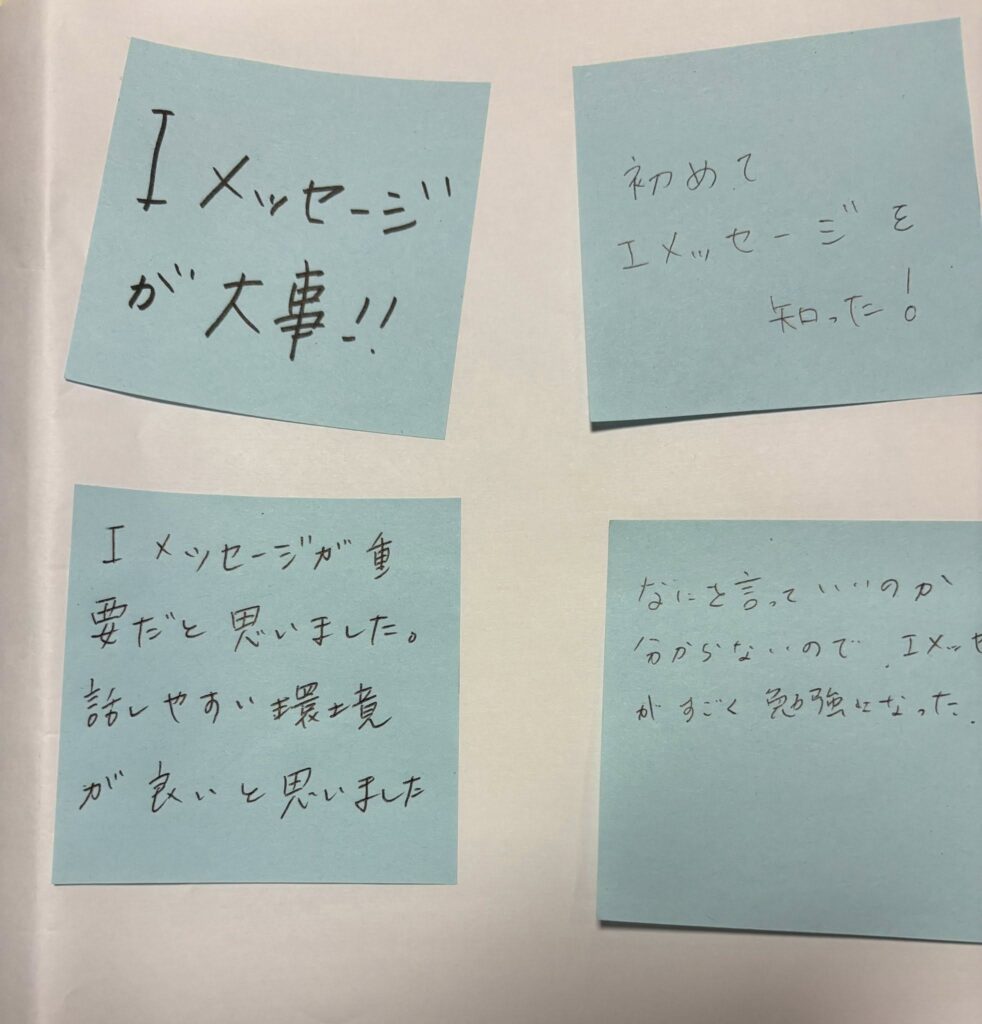 Iメッセージ
が大事!!
初めて
Iメッセージを
知った!
Iメッセージが重
要だと思いました。
話しやすい環境
が良いと思いました
なにを言っていいのか
分からないので、Iメッセ
がすごく勉強になった.